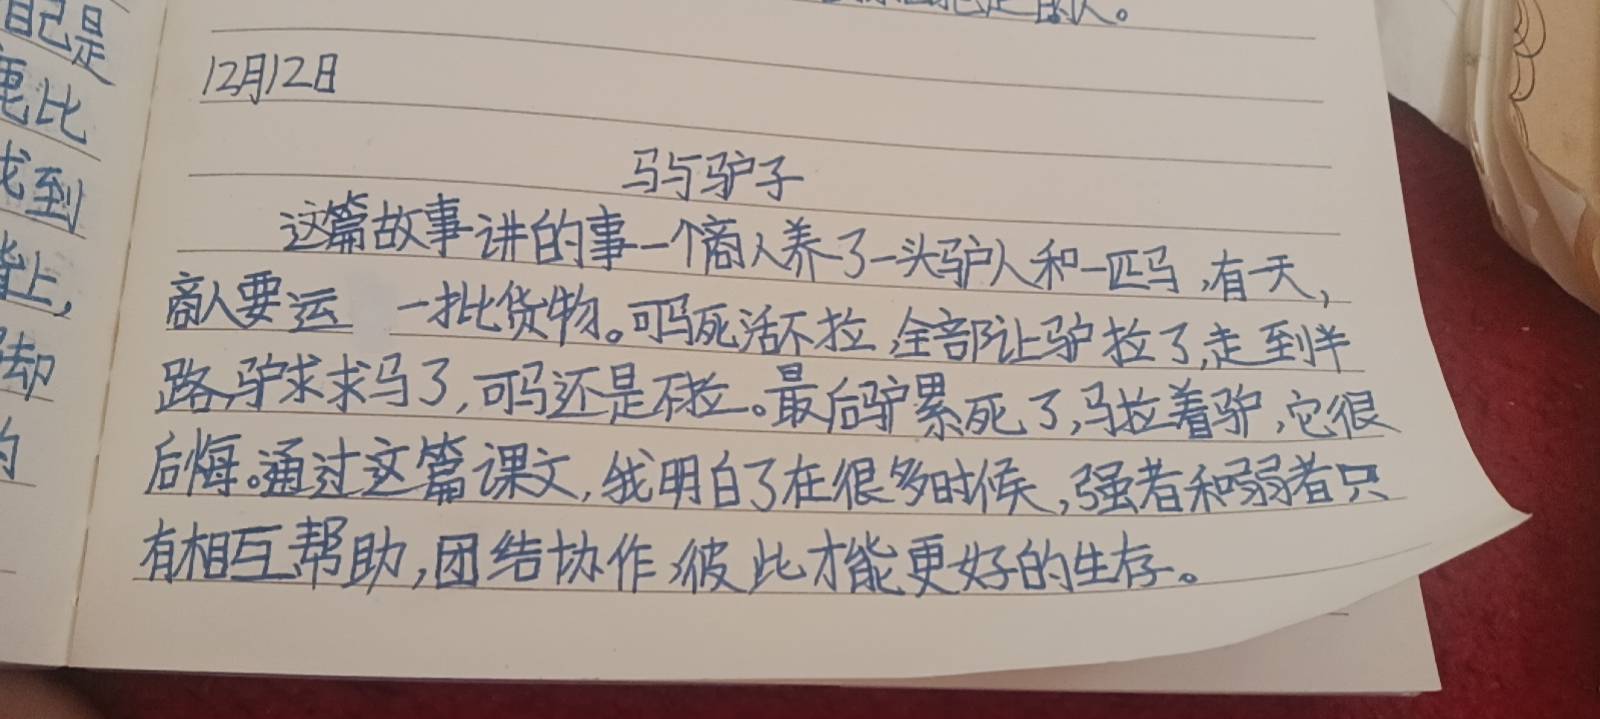 自己是
鹿比
找到
背上，
却
的
12月12日
马与驴子
这篇故事讲的事一个商人养了一头驴人和一匹马，有天，
商人要运 一批货物。可马死活不拉，全部让驴拉了，走到半
路，驴求求马了，可马还是不拉。最后驴累死了，马拉着驴，它很
后悔。通过这篇课文，我明白了在很多时候，强者和弱者只
有相互帮助，团结协作，彼此才能更好的生存。